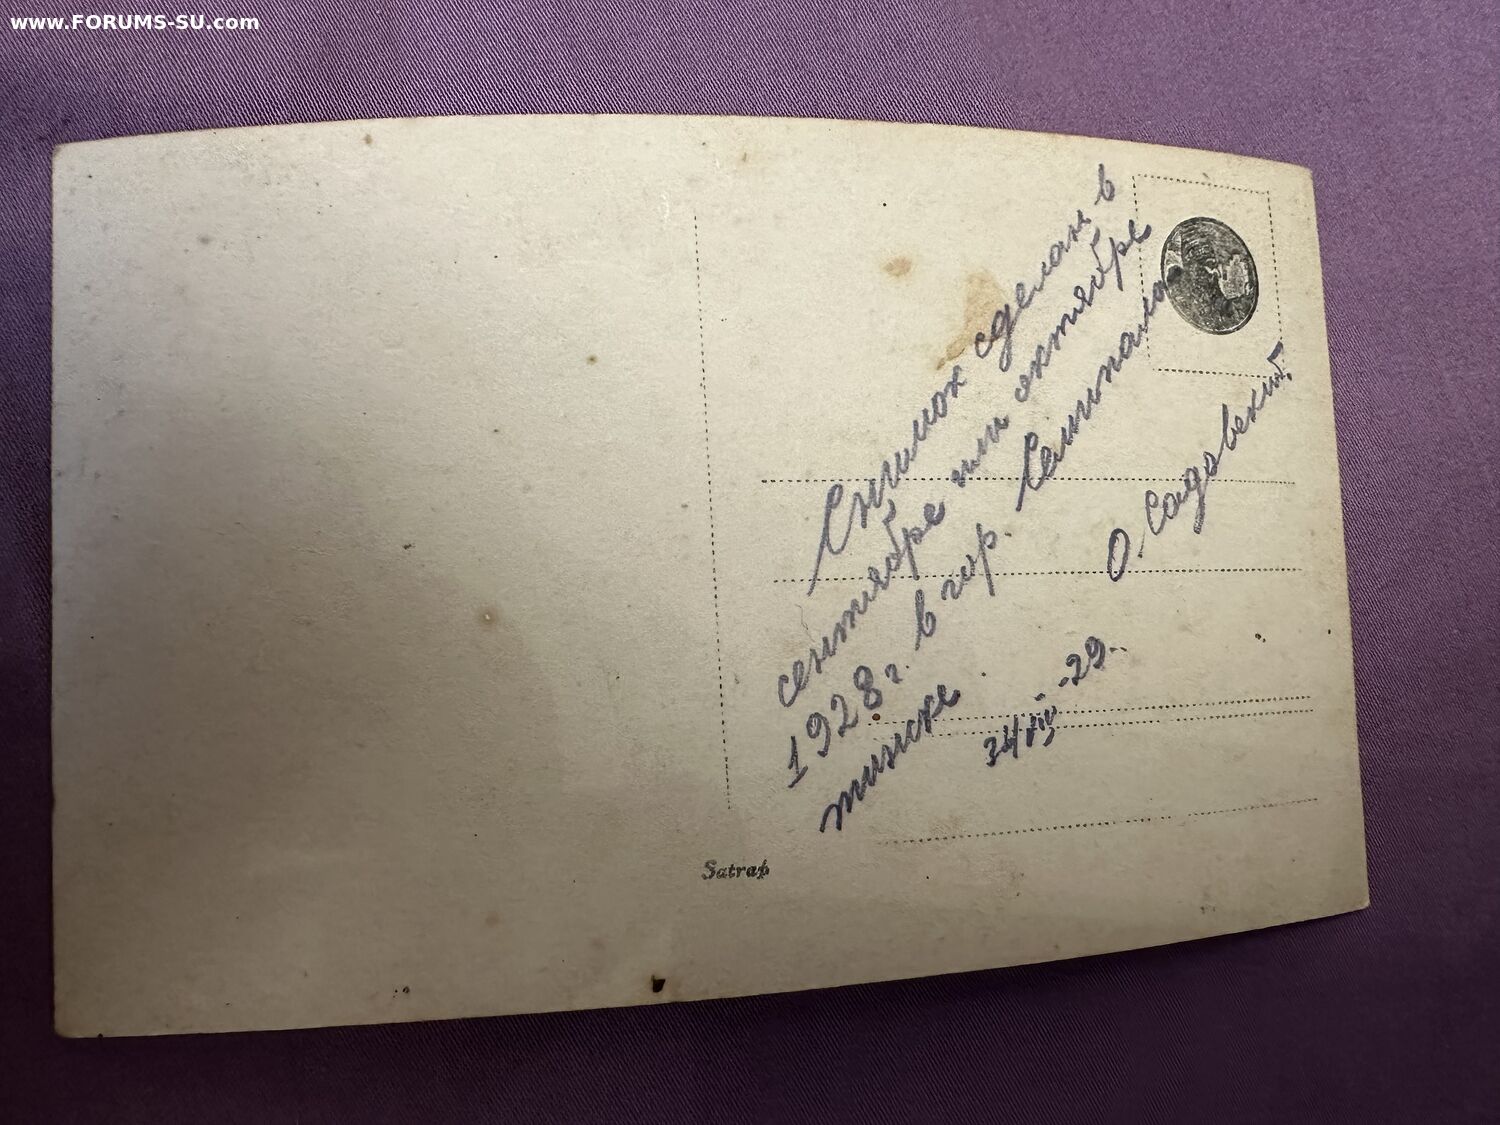 www.FORUMS-SU.com
Снимок сделан в
сентябре или октябре
1928 г. в гор. Семипала
тинске.
О. Садовский.
-29.
Satrap